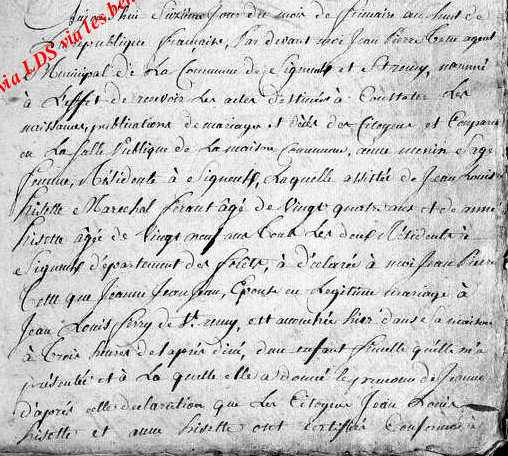 via LDS via les be
Aujourd'hui Sixzième Jour du mois de frimaire an huit de
La République Francaise, Par devant moi Jean Pierre agent
Municipal de La Commune de Signeulx et St remy, nommé
à L'effet de recevoir Les actes destinés à Constater Les
naissances, publications de mariages et décès des Citoyens et Comparue
en La Salle Publique de La maison Commune, anne Sage
femme, Résidente à Signeulx, Laquelle assistée de Jean Louis
hisette Marechal ferant âgé de Vingt quatre ans et de anne
hisette âgée de Vingt neuf ans tous Les deux Résidents à
Signeulx département des forêts, à déclarée à moi Jean Pierre
que Jeanne Jeanjean, Epouse en Legitime mariage à
Jean Louis ferry de St. remy, est accouchée hier dans sa maison
à trois heures de l'après dîné, d'un enfant femelle qu'elle m'a
présentée et à La quelle elle a donné le prenom de Jeanne
d'après cette declaration que Les Citoyens Jean Louis
hisette et anne hisette ont certifiée Conforme à